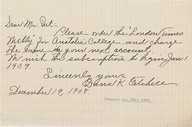 Dear Mr. 
Please order the "London Times
Weekly" for Anatolia College, and charge
the same to your next account.
We wish the subscription to begin Jan 1
1909.
Sincerely yours
Dana K. Getchell
December 19, 1908.